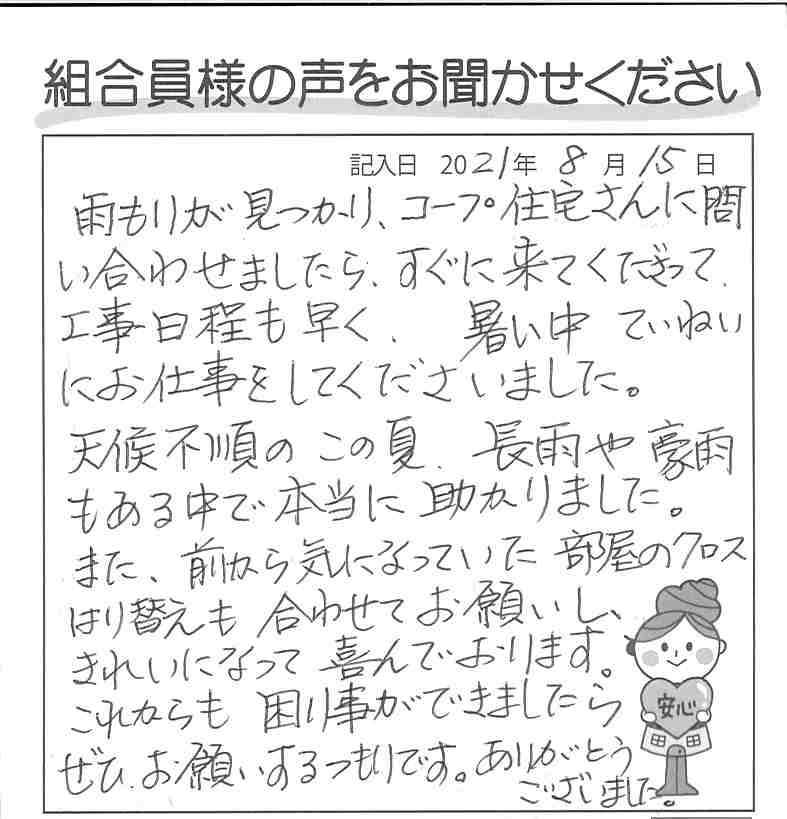 組合員様の声をお聞かせください
記入日 2021年 8月 15日
雨もりが見つかり、コープ住宅さんに問
い合わせましたら、すぐに来てくださって、
工事日程も早く、暑い中 ていねい
にお仕事をしてくださいました。
天候不順の この夏、長雨や豪雨
もある中で本当に助かりました。
また、前から気になっていた 部屋のクロス
はり替えも 合わせてお願いし、
きれいになって 喜んでおります。
これからも 困り事ができましたら
ぜひ、お願いするつもりです。ありがとう
ございました。
安心